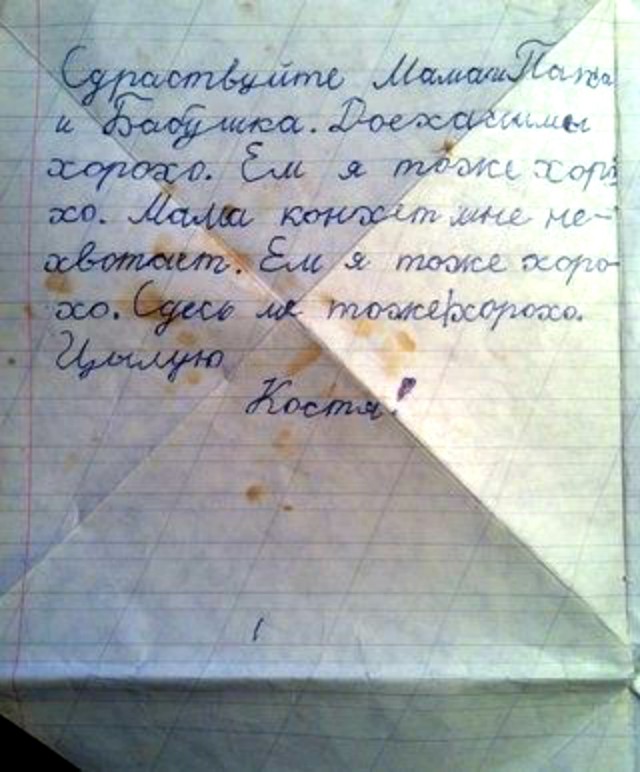 Сдраствуйте Мама и Папа
и Бабушка. Доехали мы
хорохо. Ем я тоже хоро-
хо. Мама конхет мне не-
хвотает. Ем я тоже хоро-
хо. Сдесь мне тоже хорохо.
Цылую
Костя!